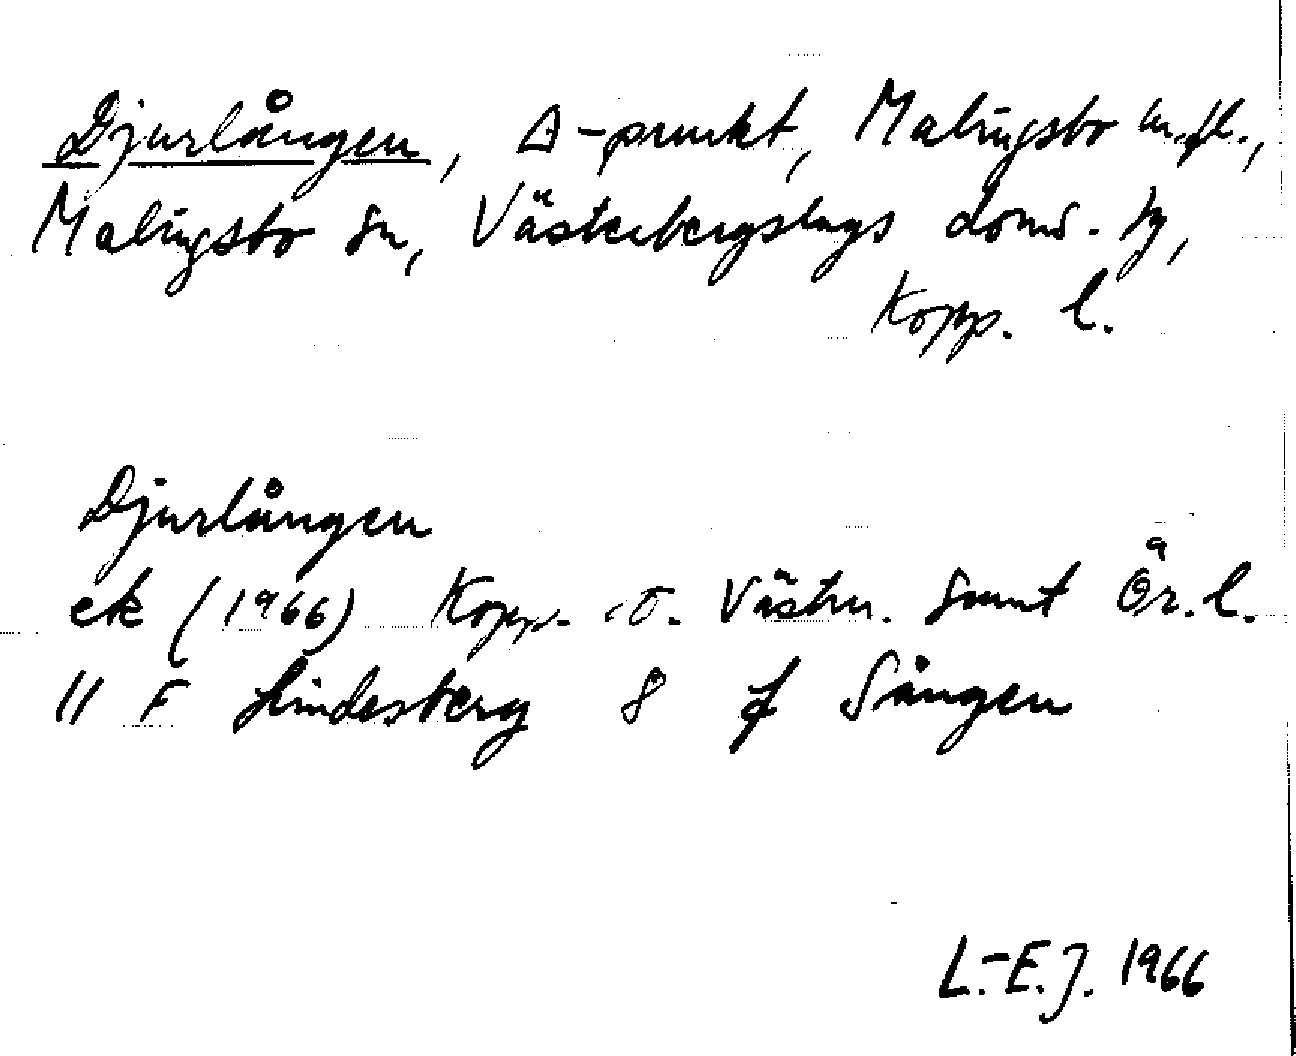 Djurlången, Δ-punkt, Malingsbo m.fl.,
Malingsbo sn, Västerbergslags doms. tg,
Kopp. l.
Djurlången
ek (1966) Kopp. o. Västm. samt Ör. l.
11 F Lindesberg 8 f Sången
L.-E.J. 1966